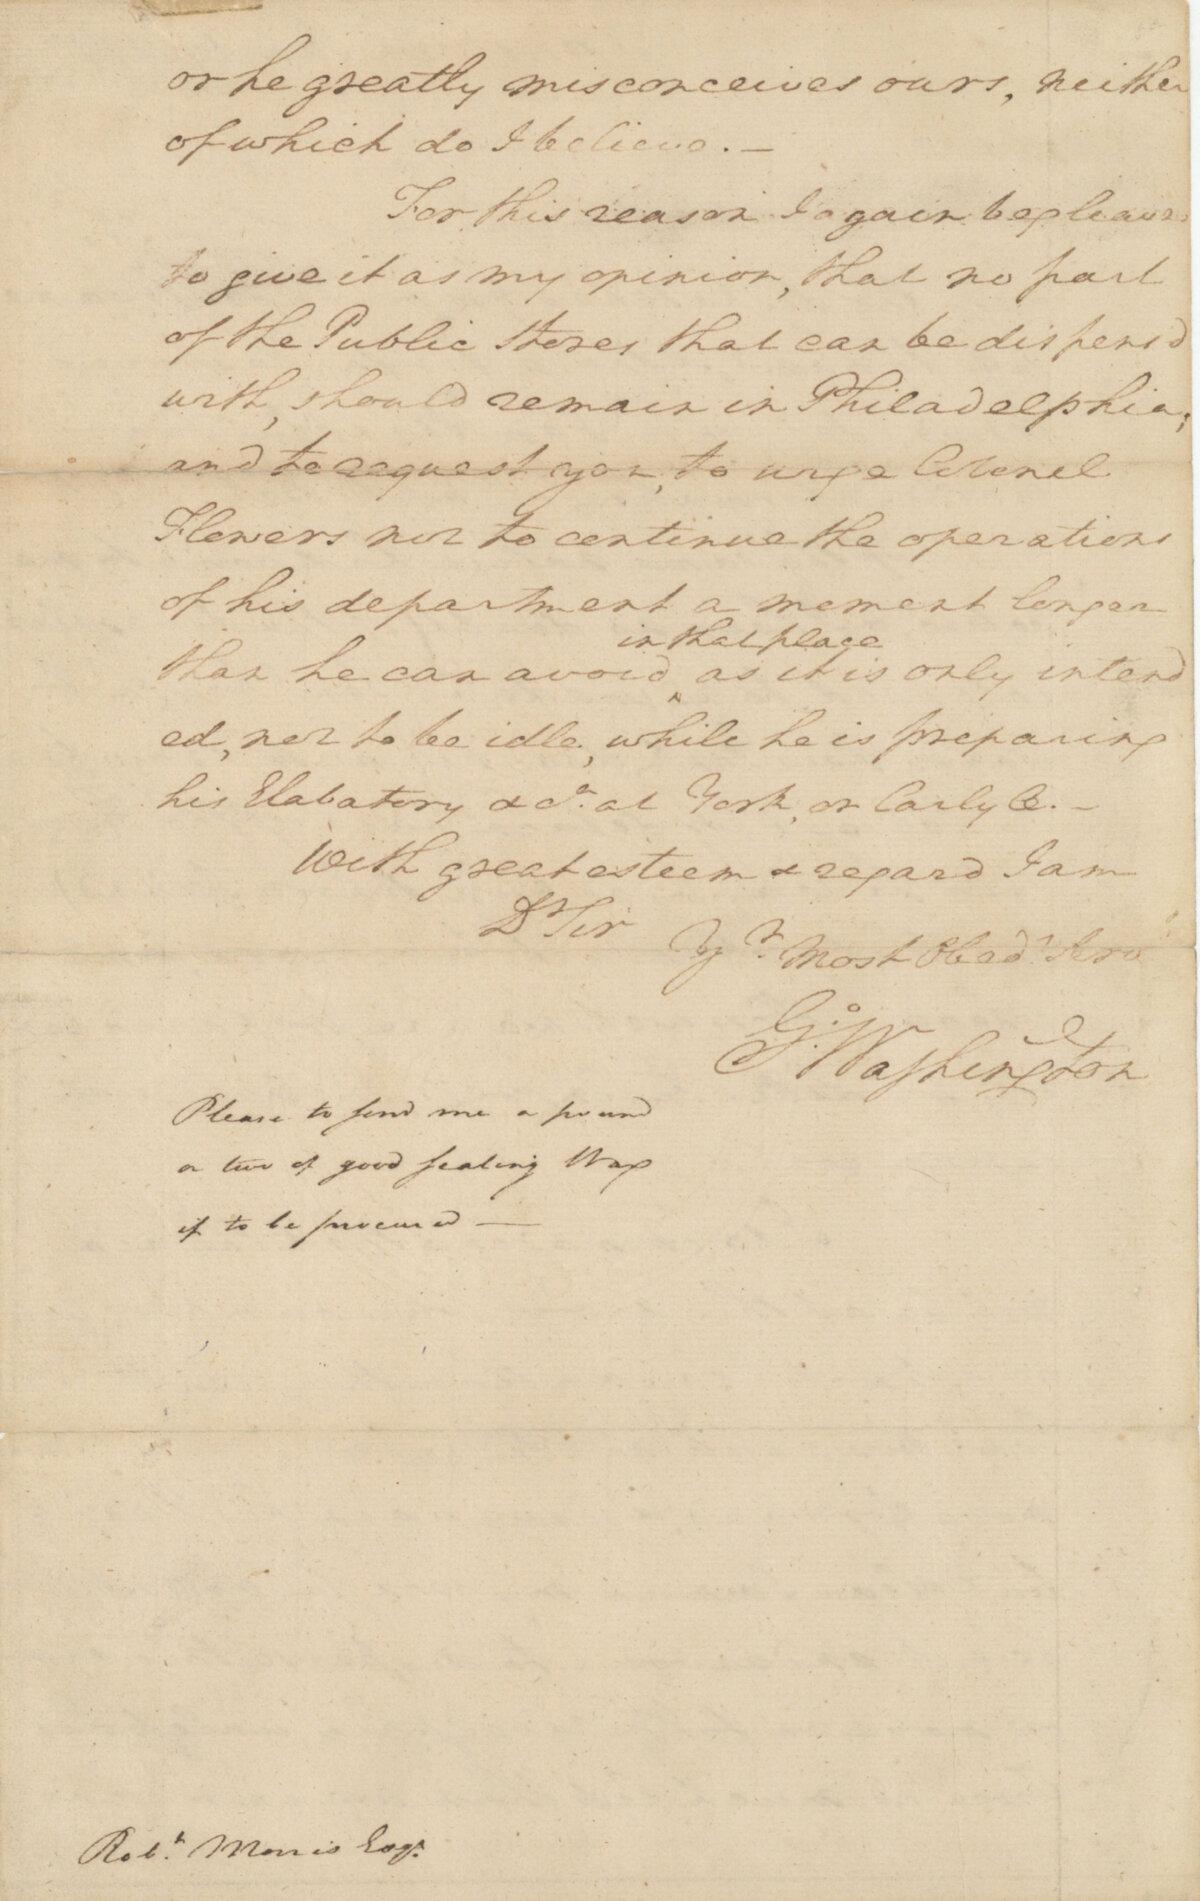 or he greatly misconceives ours, neither
of which do I believe. —
For this reason I again beg leave
to give it as my opinion, that no part
of the Public Stores that can be dispens'd
with, should remain in Philadelphia;
and to request you, to urge Colonel
Flowers not to continue the operations
of his department a moment longer
in that place
than he can avoid ^ as it is only intend
ed, not to be idle, while he is preparing
his Elabatory & ca. at York, or Carlyle. —
With great esteem & regard I am
Dr Sir
Yr. Most Obedt. Serv
Go: Washington
Please to send me a pound
or two of good sealing Wax
if to be procured —
Robt. Morris Esqr.